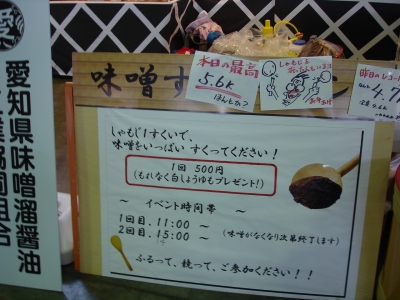 愛知県味噌溜醤油
工業協同組合
味噌す
本日の最高
5.6K
しゃもじ1すくいで、
味噌をいっぱい すくってください!
1回 500円
(もれなく白しょうゆもプレゼント!)
~ イベント時間帯 ~
1回目. 11:00 ~
2回目. 15:00 ~ (味噌がなくなり次第終了します)
ふるって、競って、ご参加ください!!